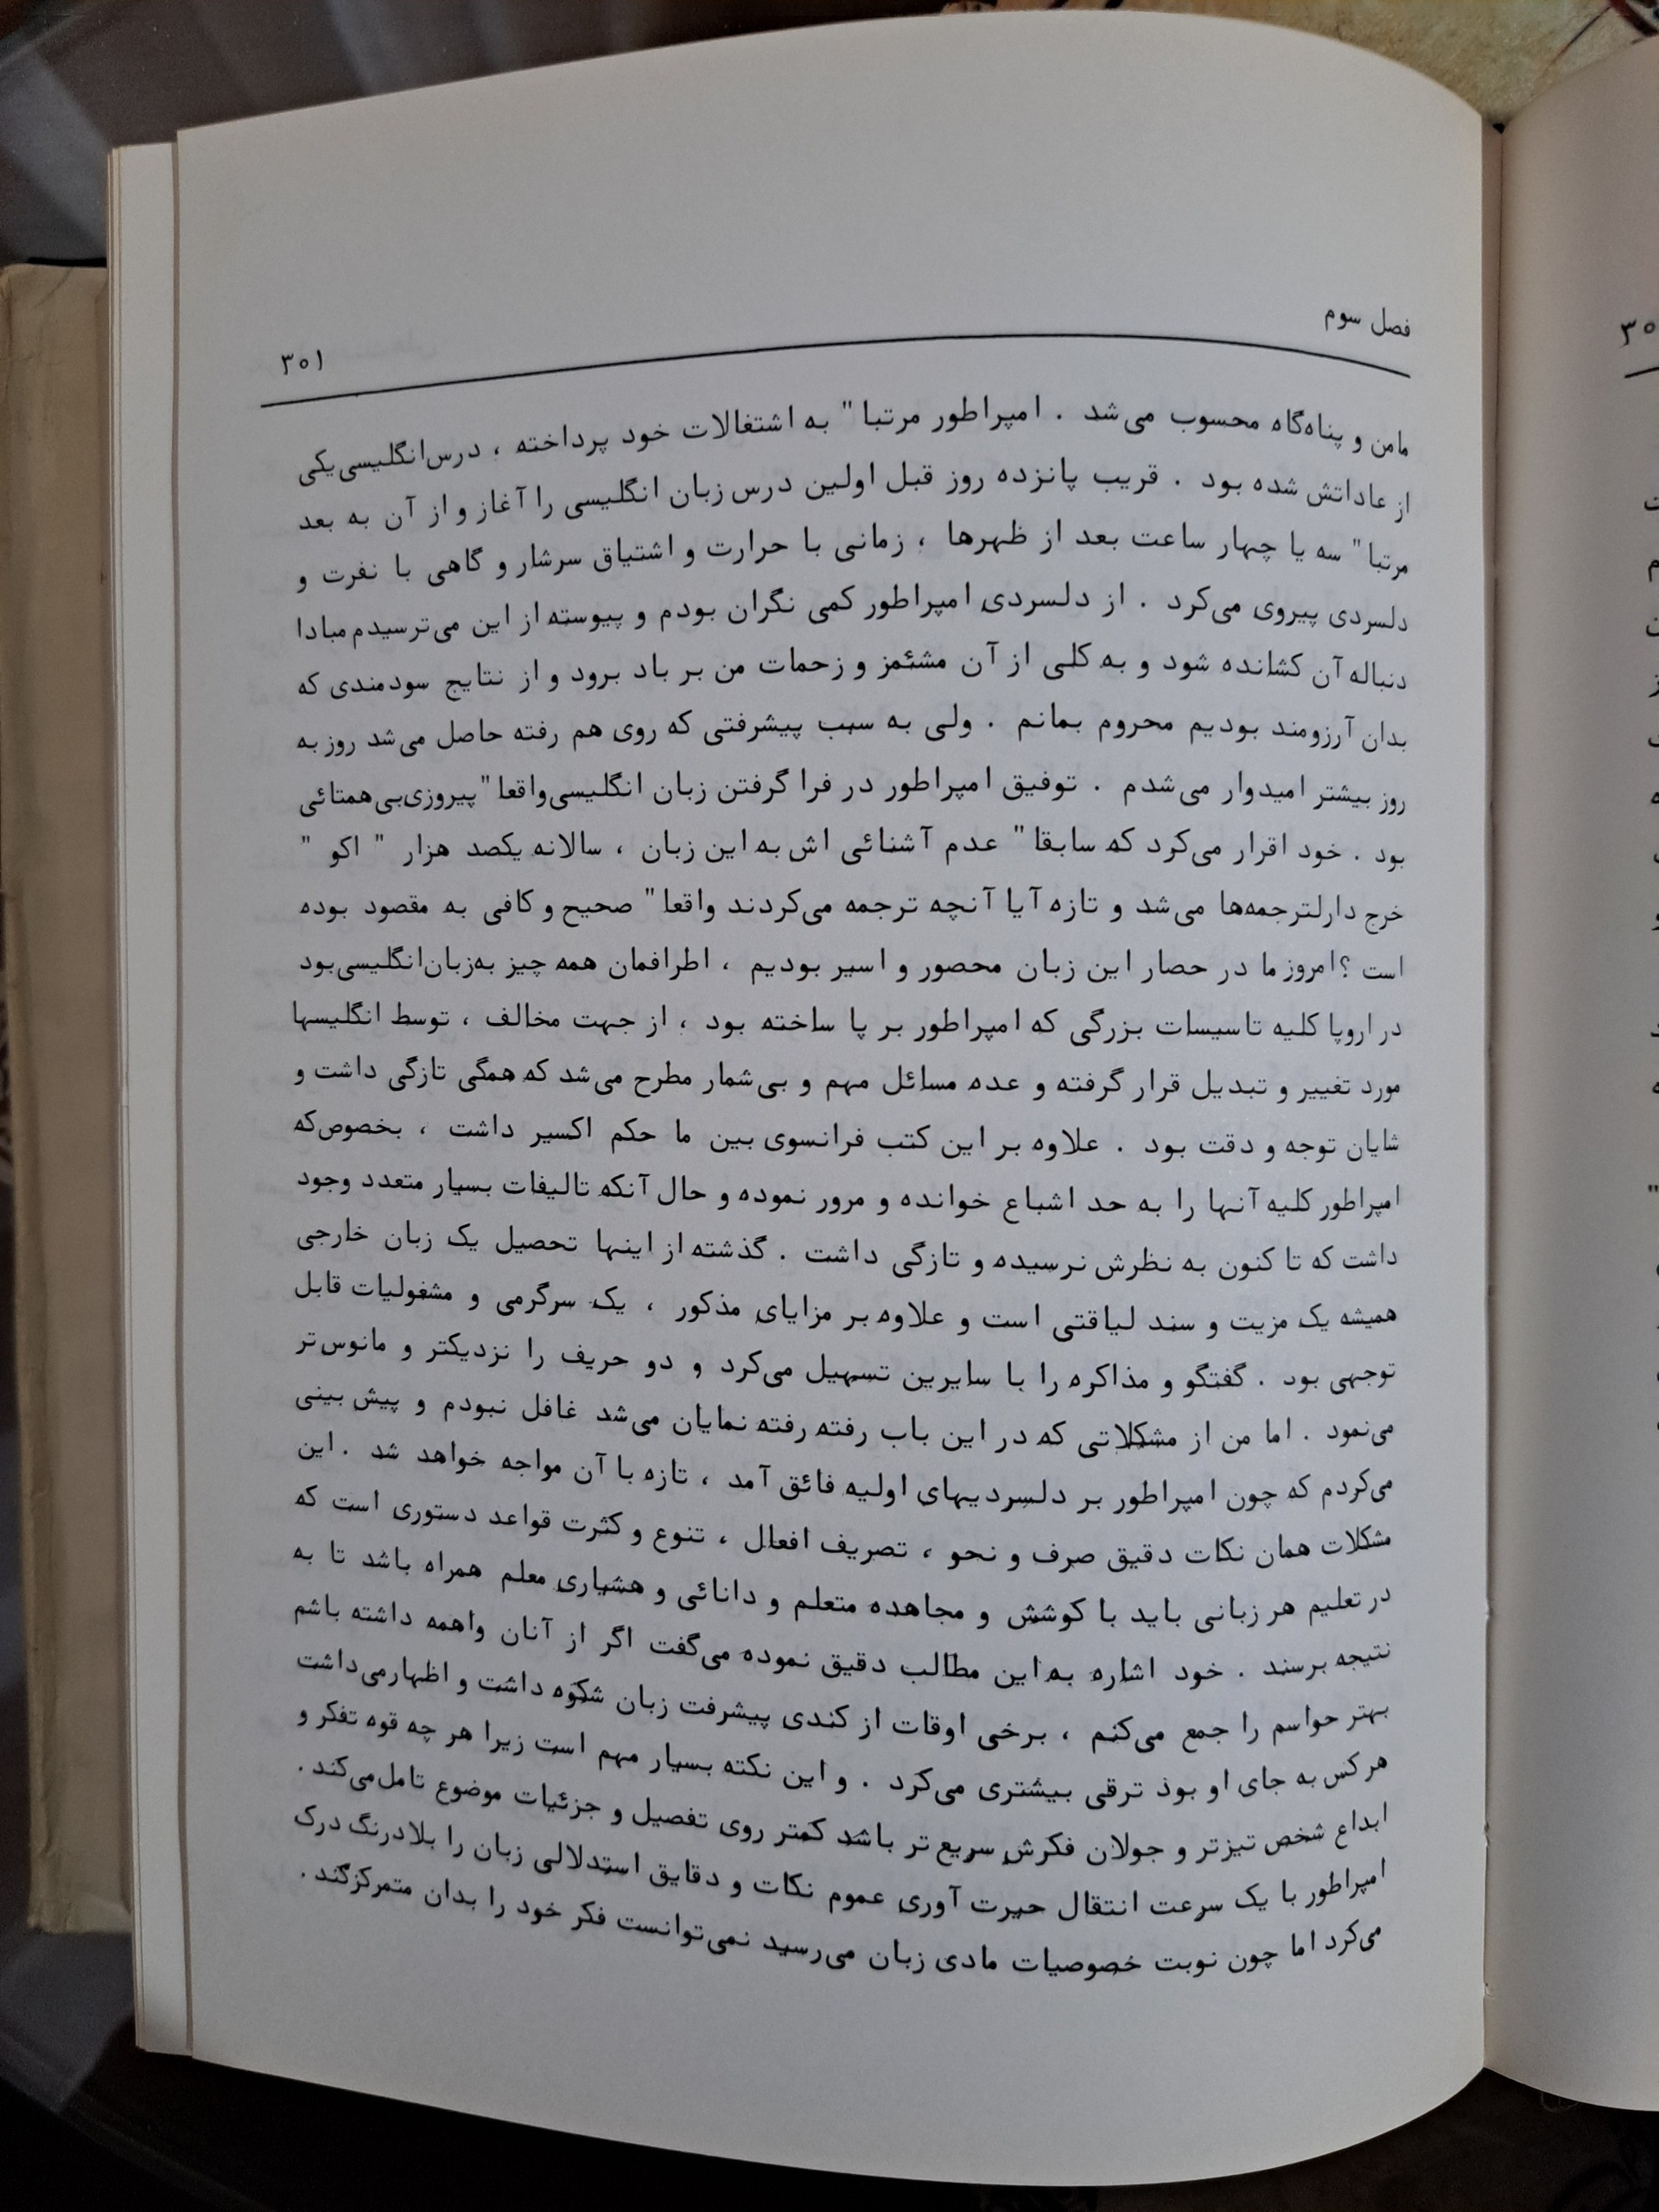 فصل سوم
۳۰۱
مامن و پناه‌گاه محسوب می‌شد . امپراطور مرتبا" به اشتغالات خود پرداخته ، درس‌انگلیسی‌یکی
از عاداتش شده بود . قریب پانزده روز قبل اولین درس زبان انگلیسی را آغاز و از آن به بعد
مرتبا" سه یا چهار ساعت بعد از ظهرها ، زمانی با حرارت و اشتیاق سرشار و گاهی با نفرت و
دلسردی پیروی می‌کرد . از دلسردی امپراطور کمی نگران بودم و پیوسته از این می‌ترسیدم مبادا
دنباله آن کشانده شود و به کلی از آن مشئمز و زحمات من بر باد برود و از نتایج سودمندی که
بدان آرزومند بودیم محروم بمانم . ولی به سبب پیشرفتی که روی هم رفته حاصل می‌شد روز به
روز بیشتر امیدوار می‌شدم . توفیق امپراطور در فرا گرفتن زبان انگلیسی‌واقعا"پیروزی‌بی‌همتائی
بود . خود اقرار می‌کرد که سابقا" عدم آشنائی اش به این زبان ، سالانه یکصد هزار " اکو "
خرج دارلترجمه‌ها می‌شد و تازه آیا آنچه ترجمه می‌کردند واقعا" صحیح و کافی به مقصود بوده
است ؟امروز ما در حصار این زبان محصور و اسیر بودیم ، اطرافمان همه چیز به‌زبان‌انگلیسی‌بود
در اروپا کلیه تاسیسات بزرگی که امپراطور بر پا ساخته بود ، از جهت مخالف ، توسط انگلیسها
مورد تغییر و تبدیل قرار گرفته و عده مسائل مهم و بی‌شمار مطرح می‌شد که همگی تازگی داشت و
شایان توجه و دقت بود . علاوه بر این کتب فرانسوی بین ما حکم اکسیر داشت ، بخصوص‌که
امپراطور کلیه آنها را به حد اشباع خوانده و مرور نموده و حال آنکه تالیفات بسیار متعدد وجود
داشت که تا کنون به نظرش نرسیده و تازگی داشت . گذشته از اینها تحصیل یک زبان خارجی
همیشه یک مزیت و سند لیاقتی است و علاوه بر مزایای مذکور ، یک سرگرمی و مشغولیات قابل
توجهی بود . گفتگو و مذاکره را با سایرین تسهیل می‌کرد و دو حریف را نزدیکتر و مانوس‌تر
می‌نمود . اما من از مشکلاتی که در این باب رفته رفته نمایان می‌شد غافل نبودم و پیش بینی
می‌کردم که چون امپراطور بر دلسردیهای اولیه فائق آمد ، تازه با آن مواجه خواهد شد . این
مشکلات همان نکات دقیق صرف و نحو ، تصریف افعال ، تنوع و کثرت قواعد دستوری است که
در تعلیم هر زبانی باید با کوشش و مجاهده متعلم و دانائی و هشیاری معلم همراه باشد تا به
نتیجه برسند . خود اشاره به این مطالب دقیق نموده می‌گفت اگر از آنان واهمه داشته باشم
بهتر حواسم را جمع می‌کنم ، برخی اوقات از کندی پیشرفت زبان شکوه داشت و اظهارمی‌داشت
هر کس به جای او بوذ ترقی بیشتری می‌کرد . و این نکته بسیار مهم است زیرا هر چه قوه تفکر و
ابداع شخص تیزتر و جولان فکرش سریع تر باشد کمتر روی تفصیل و جزئیات موضوع تامل‌می‌کند .
امپراطور با یک سرعت انتقال حیرت آوری عموم نکات و دقایق استدلالی زبان را بلادرنگ درک
می‌کرد اما چون نوبت خصوصیات مادی زبان می‌رسید نمی‌توانست فکر خود را بدان متمرکزکند .